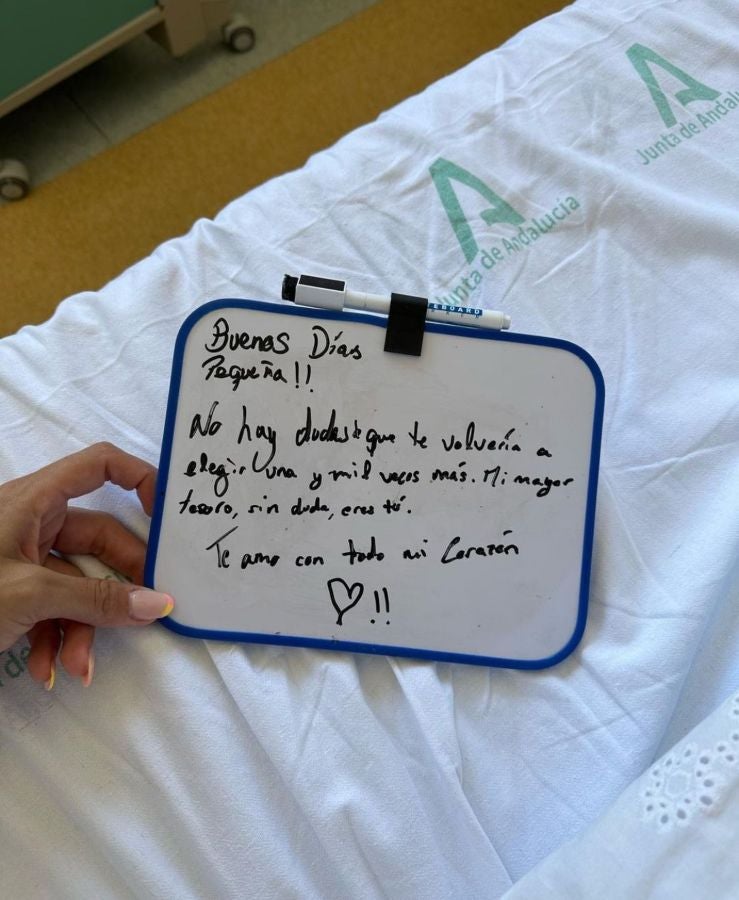 Junta de Andalu
Junta de Andalucía
EBOARD
Buenos Días
Pequeña!!
No hay dudas de que te volvería a
elegir una y mil veces más. Mi mayor
tesoro, sin duda, eres tú.
Te amo con todo mi Corazón
♡!!
de